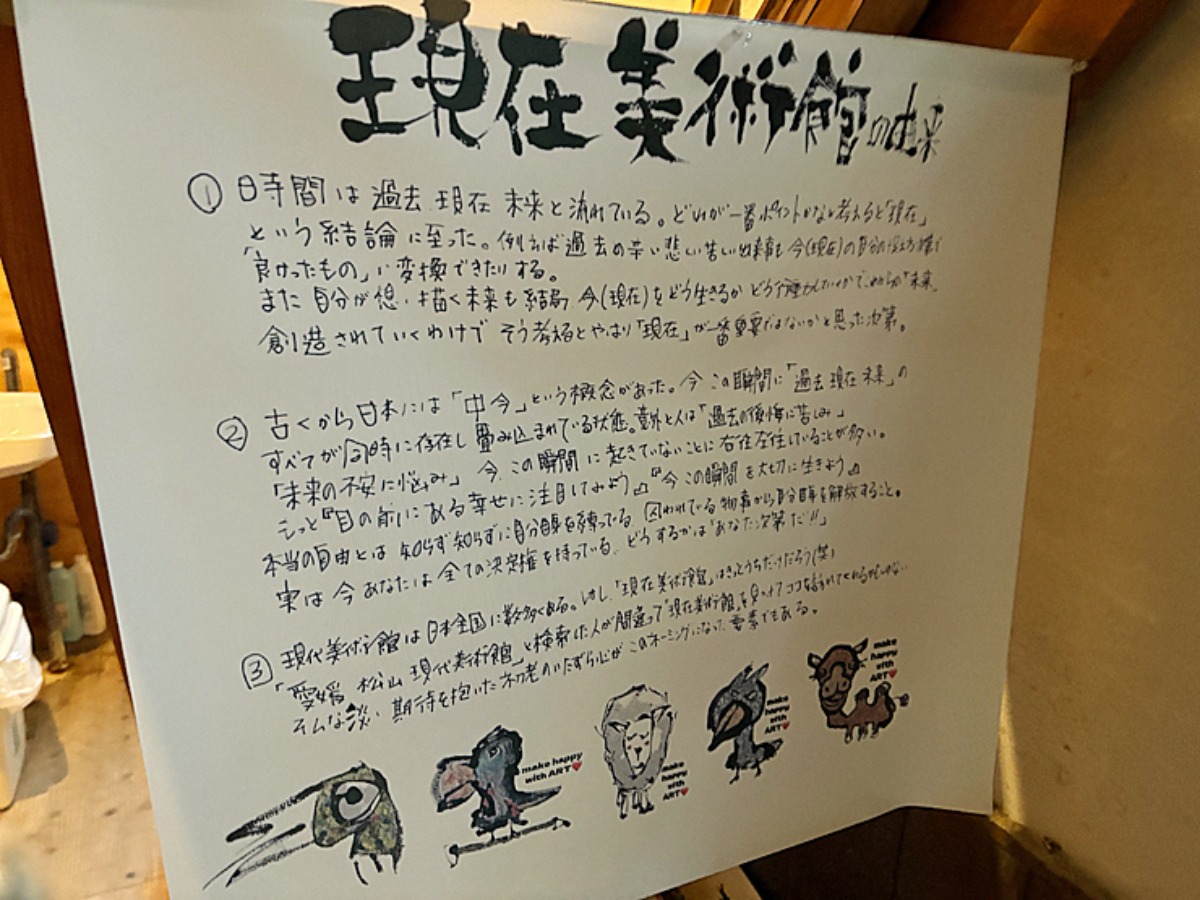 現在美術館の由来
① 時間は過去 現在 未来と流れている。どれが一番ポイントかなと考えると「現在」
という結論に至った。例えば過去の辛い悲しい苦しい出来事も今(現在)の自分の捉え方次第で
「良かったもの」に変換できたりする。
また自分が想い描く未来も結局 今(現在)をどう生きるか どう行動したいかでこれからの「未来」
創造されていくわけで そう考えるとやはり「現在」が一番重要ではないかと思った次第。
② 古くから日本には「中今」という概念があった。今この瞬間に「過去 現在 未来」の
すべてが同時に存在し 畳み込まれている状態。意外と人は「過去の後悔に苦しみ」
「未来の不安に悩み」今この瞬間に起きていないことに右往左往していることが多い。
もっと『目の前にある幸せに注目してみよう』『今この瞬間を大切に生きよう』
本当の自由とは 知らず知らずに自分自身を縛っている 囚われている物事から自分自身を解放すること。
実は今あなたは全ての決定権を持っている。どうするかは「あなた次第だ!!」
③ 現代美術館は日本全国に数多くある。しかし「現在美術館」はきっとうちだけだろう(笑)
「愛媛 松山 現代美術館」と検索した人が間違って「現在美術館」を見つけてココを訪れてくれるかもしれない
そんな淡い期待を抱いた初老のいたずら心がこのネーミングになった要素でもある。
make happy
with ART
make
happy
with
ART
make
happy
with
ART
make
happy
with
ART